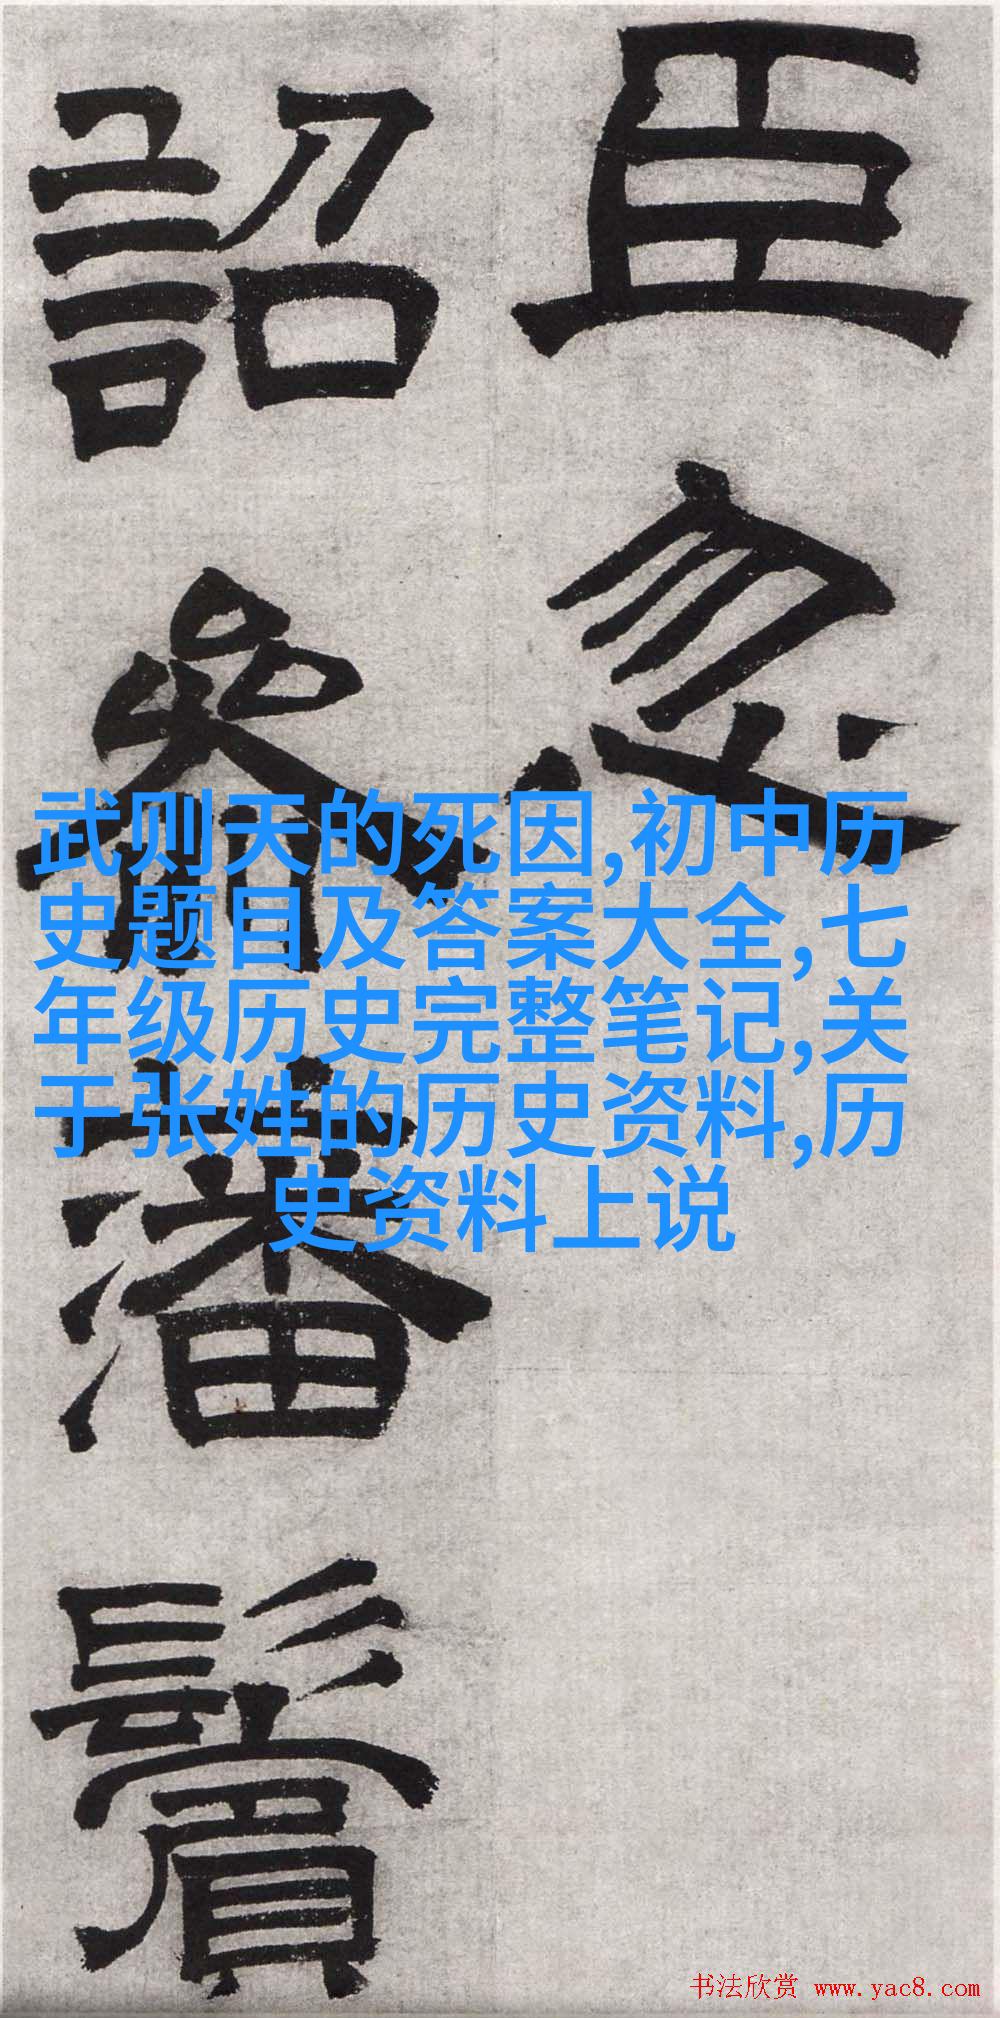 臣忽
詔參潘鬢
武则天的死因,初中历
史题目及答案大全,七
年级历史完整笔记,关
于张姓的历史资料,历
史资料上说
书法欣赏 www.yac8.com